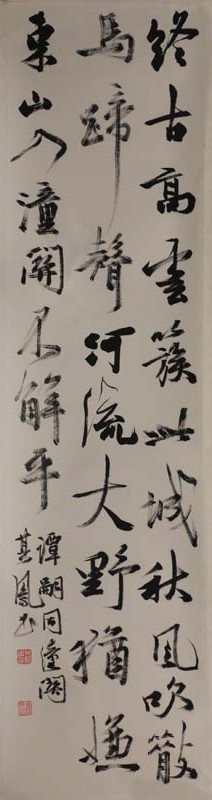 終古高雲簇此城秋風吹散
馬蹄聲河流大野猶嫌
束山入潼關不解平
譚嗣同潼關
其鳳書